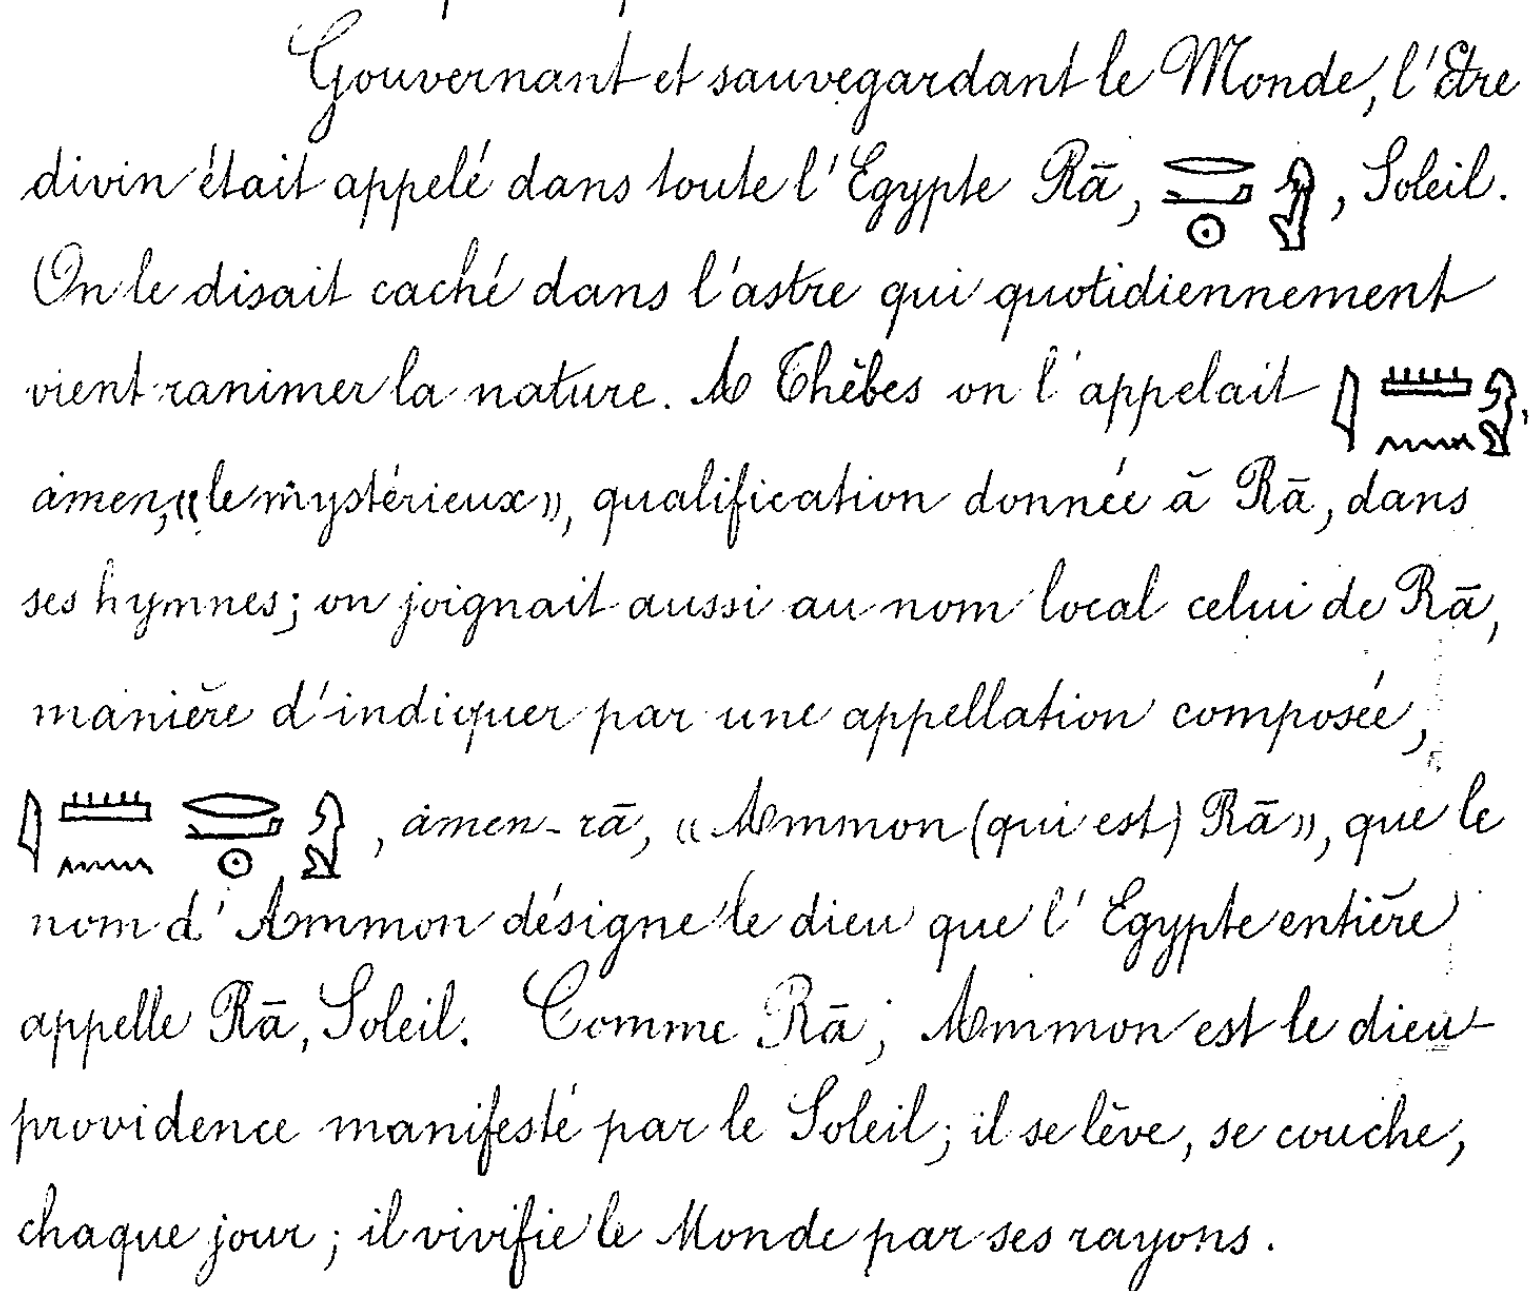 Gouvernant et sauvegardant le Monde, l'Être
divin était appelé dans toute l'Égypte Rā, 𓂋𓂝𓇳𓀭, Soleil.
On le disait caché dans l'astre qui quotidiennement
vient ranimer la nature. A Thèbes on l'appelait 𓇋𓏠𓈖𓀭,
ámen, «le mystérieux», qualification donnée à Rā, dans
ses hymnes; on joignait aussi au nom local celui de Rā,
manière d'indiquer par une appellation composée,
𓇋𓏠𓈖𓂋𓂝𓇳𓀭, ámen-rā, «Ammon (qui est) Rā», que le
nom d'Ammon désigne le dieu que l'Égypte entière
appelle Rā, Soleil. Comme Rā, Ammon est le dieu-
providence manifesté par le Soleil; il se lève, se couche,
chaque jour; il vivifie le Monde par ses rayons.